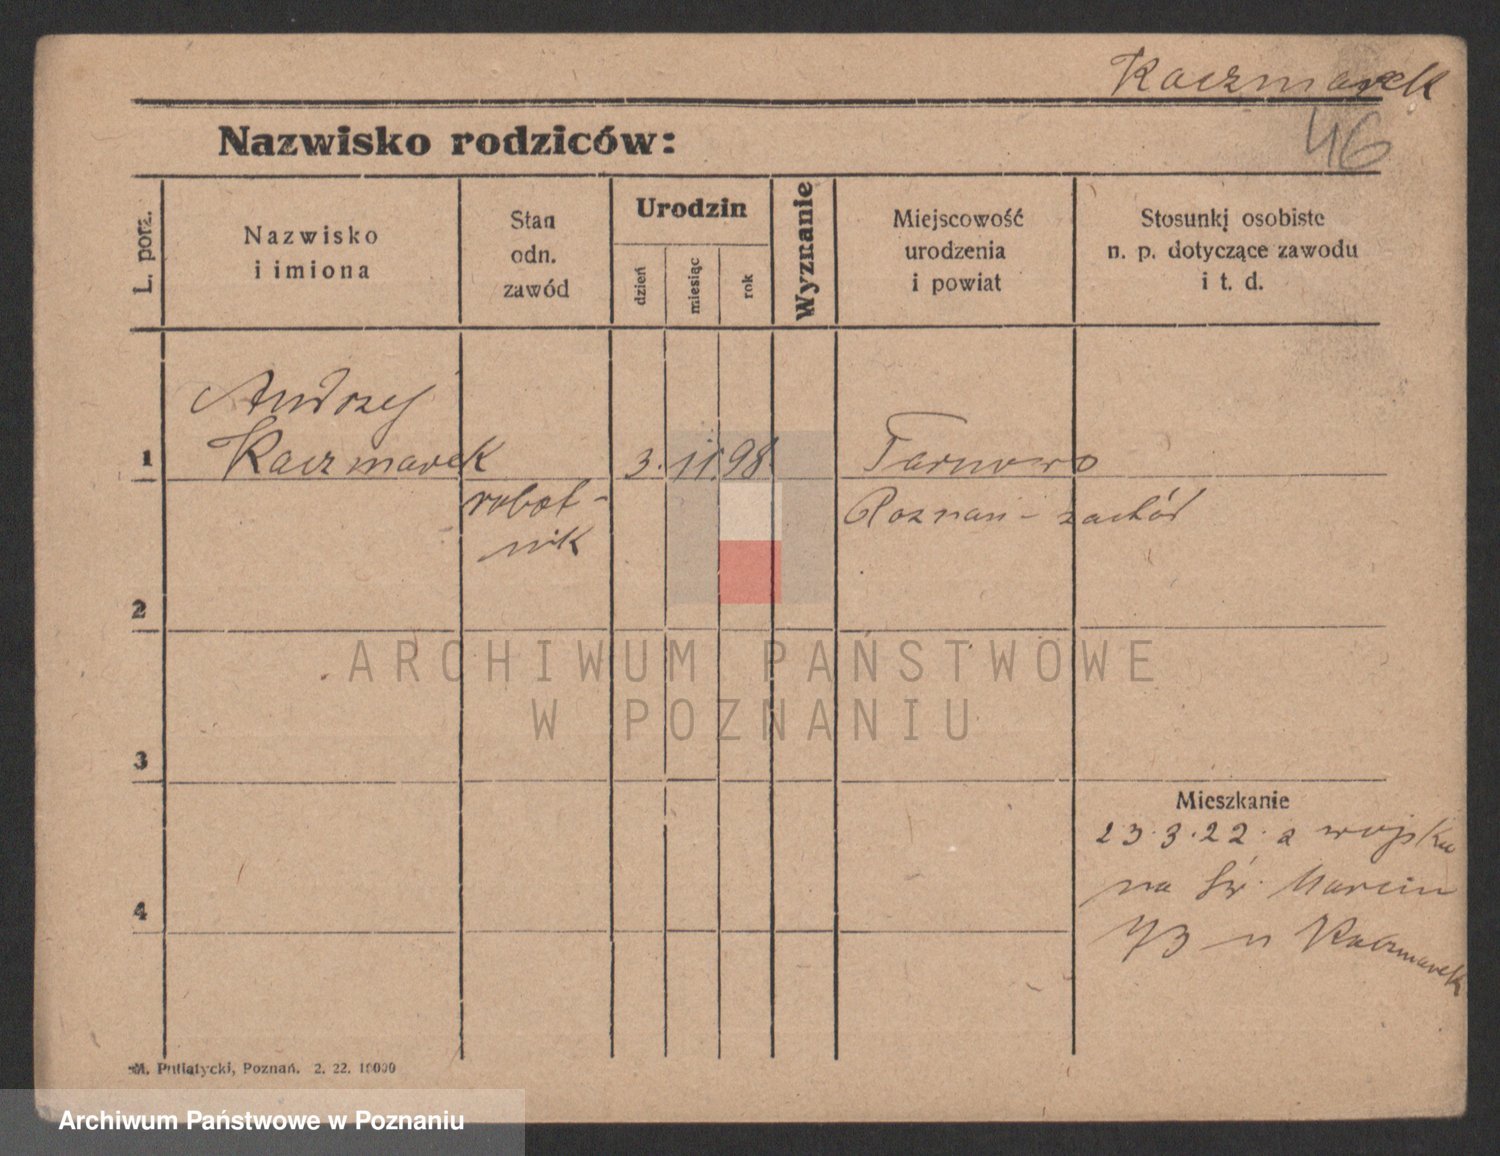 Kaczmarek
46
Nazwisko rodziców:
L. porz.
Nazwisko
i imiona
Stan
odn.
zawód
Urodzin
dzień
miesiąc
rok
Wyznanie
Miejscowość
urodzenia
i powiat
Stosunki osobiste
n. p. dotyczące zawodu
i t. d.
Andrzej
1 Kaczmarek 3. 11. 98. Tarnowo
robot-
nik
Poznań - zachód
2
3
Mieszkanie
23.3.22. z wojska
na św. Marcin
73 u Kaczmarek
4
M. Putiatycki, Poznań. 2. 22. 10000
ARCHIWUM PAŃSTWOWE
W POZNANIU
Archiwum Państwowe w Poznaniu